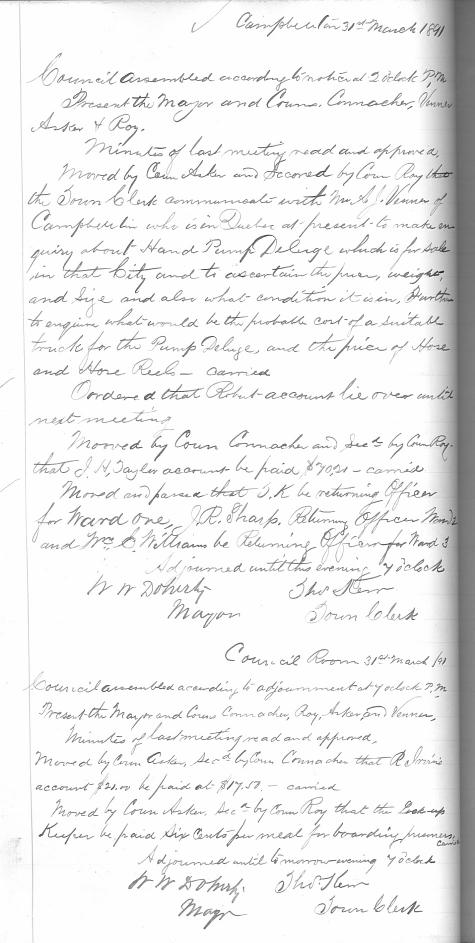 Campbellton 31st March 1891
Council assembled according to notice at 2 oclock P.M
Present the Mayor and Couns. Connacher, Venner
Asker & Roy.
Minutes of last meeting read and approved,
Moved by Coun Asker and Secored by Coun Roy that
the Town Clerk communicate with Mr A.J. Venner of
Campbellton who is in Quebec at present to make en
quiry about Hand Pump Deluge which is for sale
in that City and to ascertain the price, weight,
and Size and also what condition it is in, Further
to enquire what would be the probable cost of a suitable
truck for the Pump Deluge, and the price of Hose
and Hose Reels - carried
Oordered that account lie over until
next meeting
Mooved by Coun Connacher and Secd by Coun Roy
that J. H. Taylor account be paid - carried
Moved and passed that T. K be returning Officer
for Ward One, J. R. Sharp, Returning Officer Ward 2
and Wm C. Williams be Returning Officer for Ward 3
Adjourned until this evening 7 oclock
W W Doherty Thos Kerr
Mayor Town Clerk
Council Room 31st March /91
Council assembled according to adjournment at 7 oclock P.M
Present the Mayor and Couns Connacher, Roy, Asker, and Venner,
Minutes of last meeting read and approved,
Moved by Coun Asker, Secd by Coun Connacher that R Irvine
account $21.00 be paid at $17.50. - carried
Moved by Coun Asker, Secd by Coun Roy that the Lock up
Keeper be paid Six Cents per meal for boarding prisoners,
carried
Adjourned until to morrow evening 7 oclock
W W Doherty Thos Kerr
Mayor Town Clerk